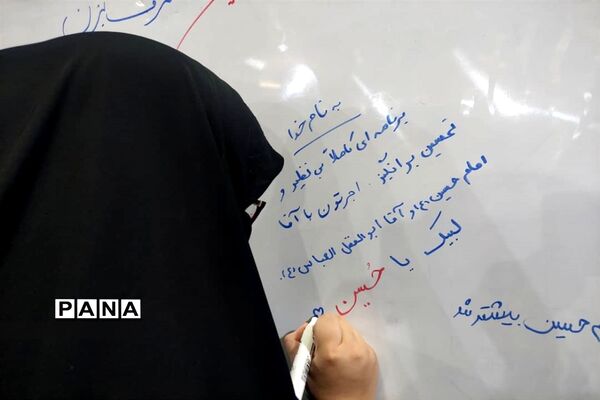 به نام خدا
برنامه ای کاملا بی نظیر و
تحسین برانگیز. اجرتون با آقا
امام حسین (ع) و آقا ابوالفضل العباس (ع).
لبیک یا حُسین
حسین بیشتر شد
PANA